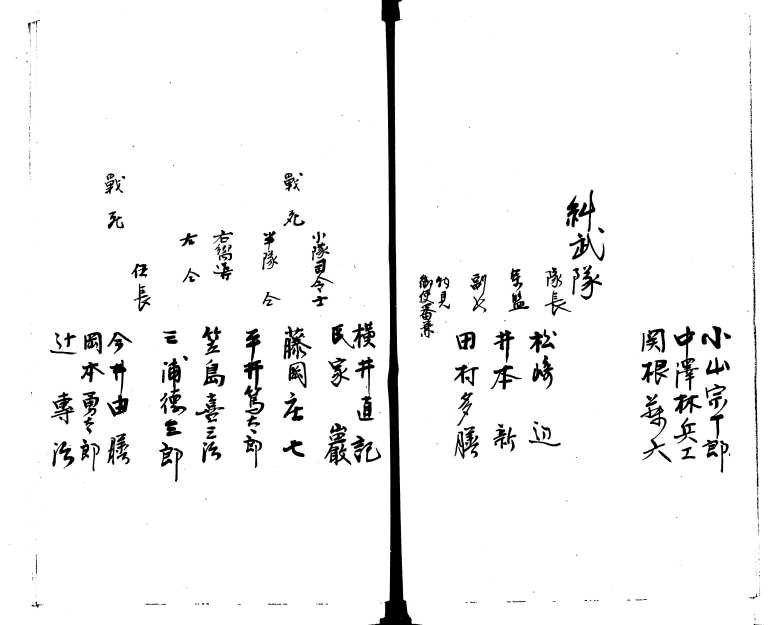 小山宗丁郎
中澤林兵工
関根
糾武隊
隊長 松崎
軍監 井本新
副 田村多膳
御使番兼
横井直記
小隊司令士 民家巌
戰死 藤岡庄七
半隊仝 平井篤太郎
右嚮導 笠島喜三治
左仝 三浦德三郎
伍長 今井由膳
戰死 岡本勇太郎
辻専治